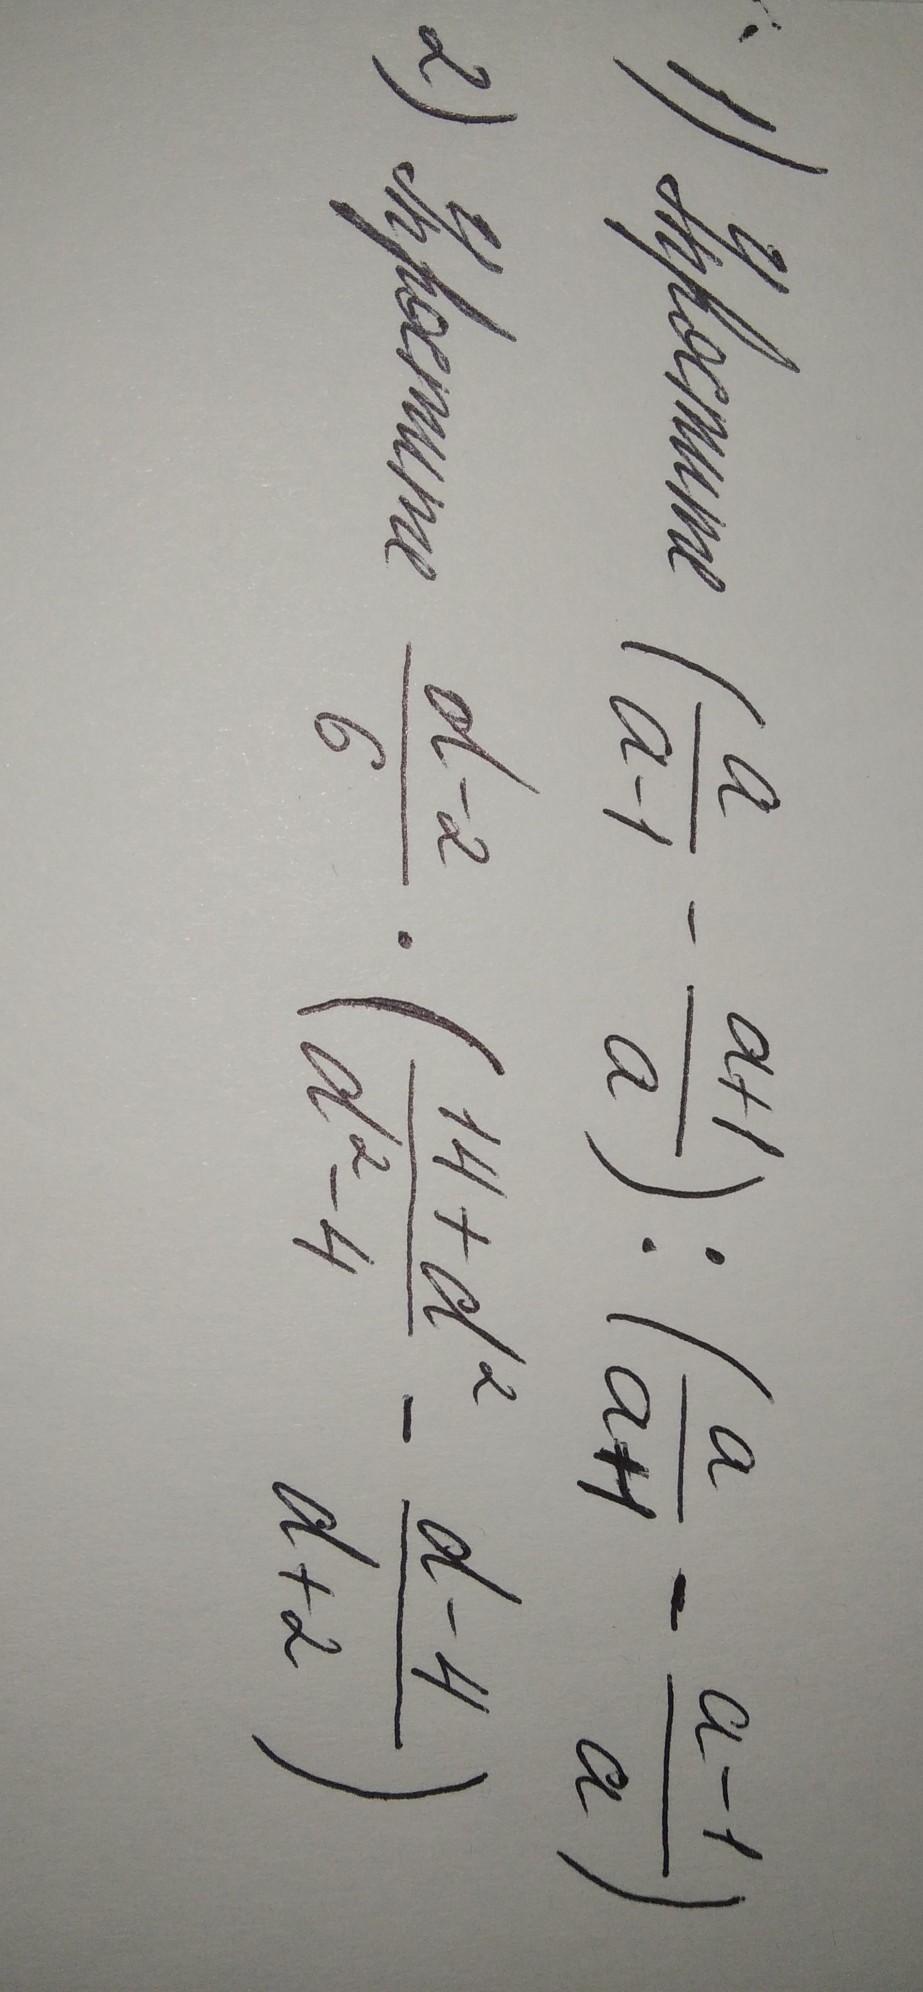 1) Упростите (a/(a-1) - (a+1)/a) : (a/(a+1) - (a-1)/a)
2) Упростите (d-2)/6 · ((14+d²)/(d²-4) - (d-4)/(d+2))